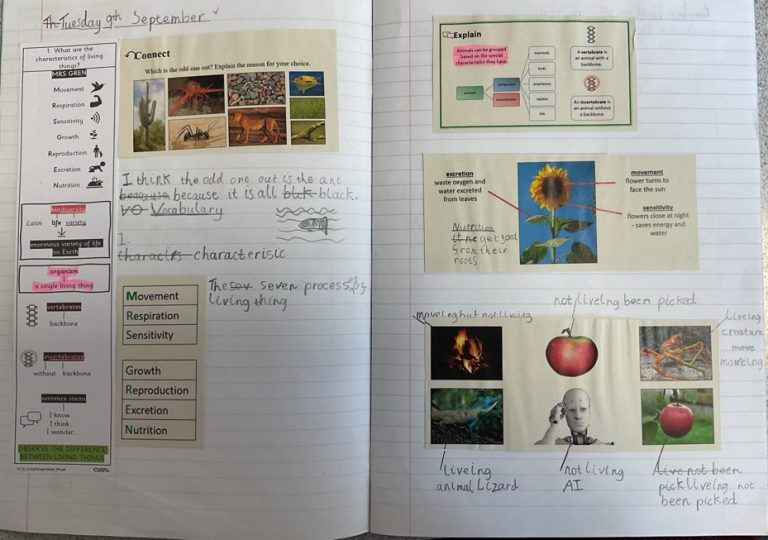 Tuesday 9th September.
1. What are the
characteristics of living
things?
MRS GREN
Movement
Respiration
Sensitivity
Growth
Reproduction
Excretion
Nutrition
biodiversity
Latin: life variety
enormous variety of life
on Earth
organism
a single living thing
vertebrates
backbone
invertebrates
without backbone
sentence stems
I know...
I think...
I wonder...
OBSERVE THE DIFFERENCE
BETWEEN LIVING THINGS
CUSP
Connect
Which is the odd one out? Explain the reason for your choice.
I think the odd one out is the ant
because because it is all blak black.
Vo Vocabulary
1.
characteristic
Movement
Respiration
Sensitivity
Growth
Reproduction
Excretion
Nutrition
The sev seven processes of
living thing
Explain
Animals can be grouped
based on the special
characteristics they have.
animals
vertebrates
invertebrates
mammals
birds
amphibians
reptiles
fish
A vertebrate is
an animal with a
backbone.
An invertebrate is
an animal without
a backbone.
excretion
waste oxygen and
water excreted
from leaves
Nutrition
get food
from their
roots
movement
flower turns to
face the sun
sensitivity
flowers close at night
- saves energy and
water
moveing but not liveing
not liveing been picked
liveing
creature
move
moveing
liveing
animal Lizard
not living
AI
Live not been
pick liveing not
been picked